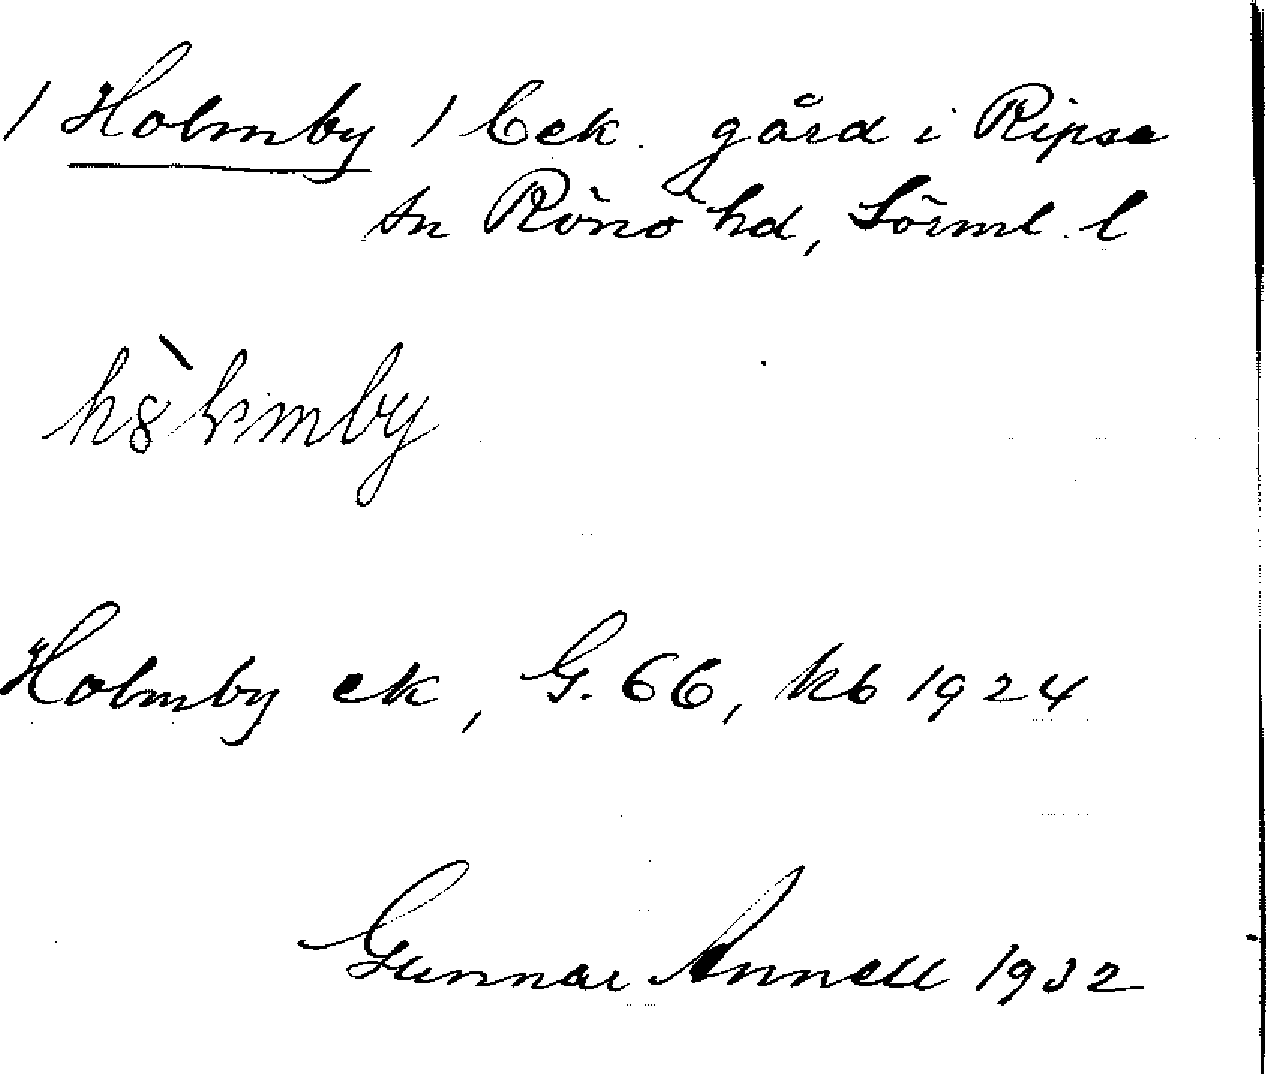 / Holmby / Eek. gård i Ripsa
sn Rönö hd, Sörml. l
Holmby ek, G. 66, kb 1924
Gunnar Annell 1932